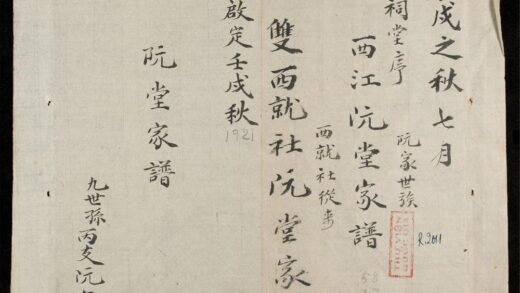 戌之秋七月
祠堂序
阮家世族
R.2011
THƯ VIỆN
西江阮堂家譜
西就社從来
雙西就社阮堂家
啟定壬戌秋
1921
阮堂家譜
九世孫丙支阮